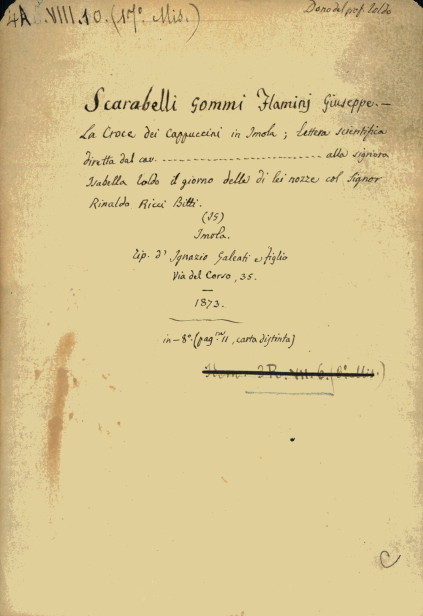 4A VIII.10.(17° Mis.)
Dono del prof. Loldo
Scarabelli Gommi Flaminj Giuseppe.—
La Croce dei Cappuccini in Imola; Lettera scientifica
diretta dal cav. ------------------------ alla signora
Isabella Loldo il giorno delle di lei nozze col Signor
Rinaldo Ricci Bitti.
(15)
Imola.
Tip. d' Ignazio Galeati e Figlio
Via del Corso, 35.
—
1873.
in-8° (pag.ne 11, carta distinta)
VIII. 6.
C